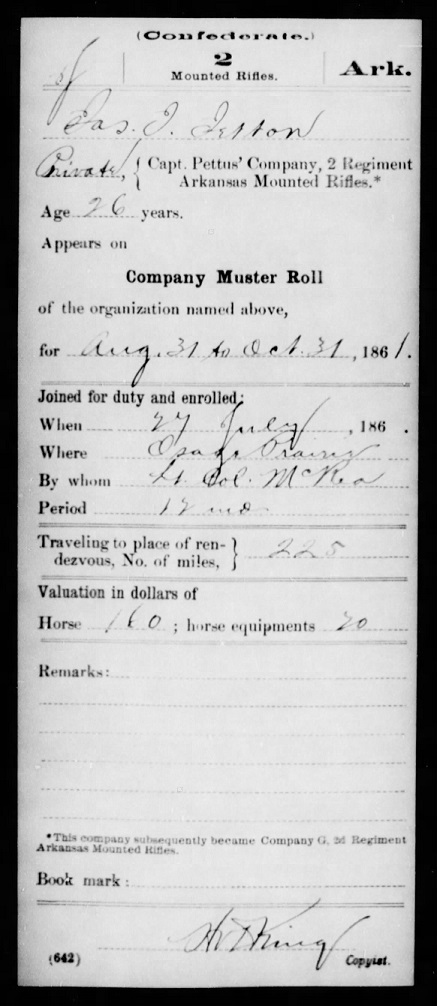 (Confederate.)
2
Mounted Rifles.
Ark.
Jas. J. Jetton
Private, { Capt. Pettus' Company, 2 Regiment
Arkansas Mounted Rifles.*
Age 26 years.
Appears on
Company Muster Roll
of the organization named above,
for Aug. 31 to Oct. 31, 1861.
Joined for duty and enrolled:
When 27 July, 186 .
Where Osage Prairie
By whom Lt. Col. McRea
Period 12 mo
Traveling to place of ren-
dezvous, No. of miles, } 225
Valuation in dollars of
Horse 160 ; horse equipments 20
Remarks:
*This company subsequently became Company G, 2d Regiment
Arkansas Mounted Rifles.
Book mark:
King
(642)
Copyist.